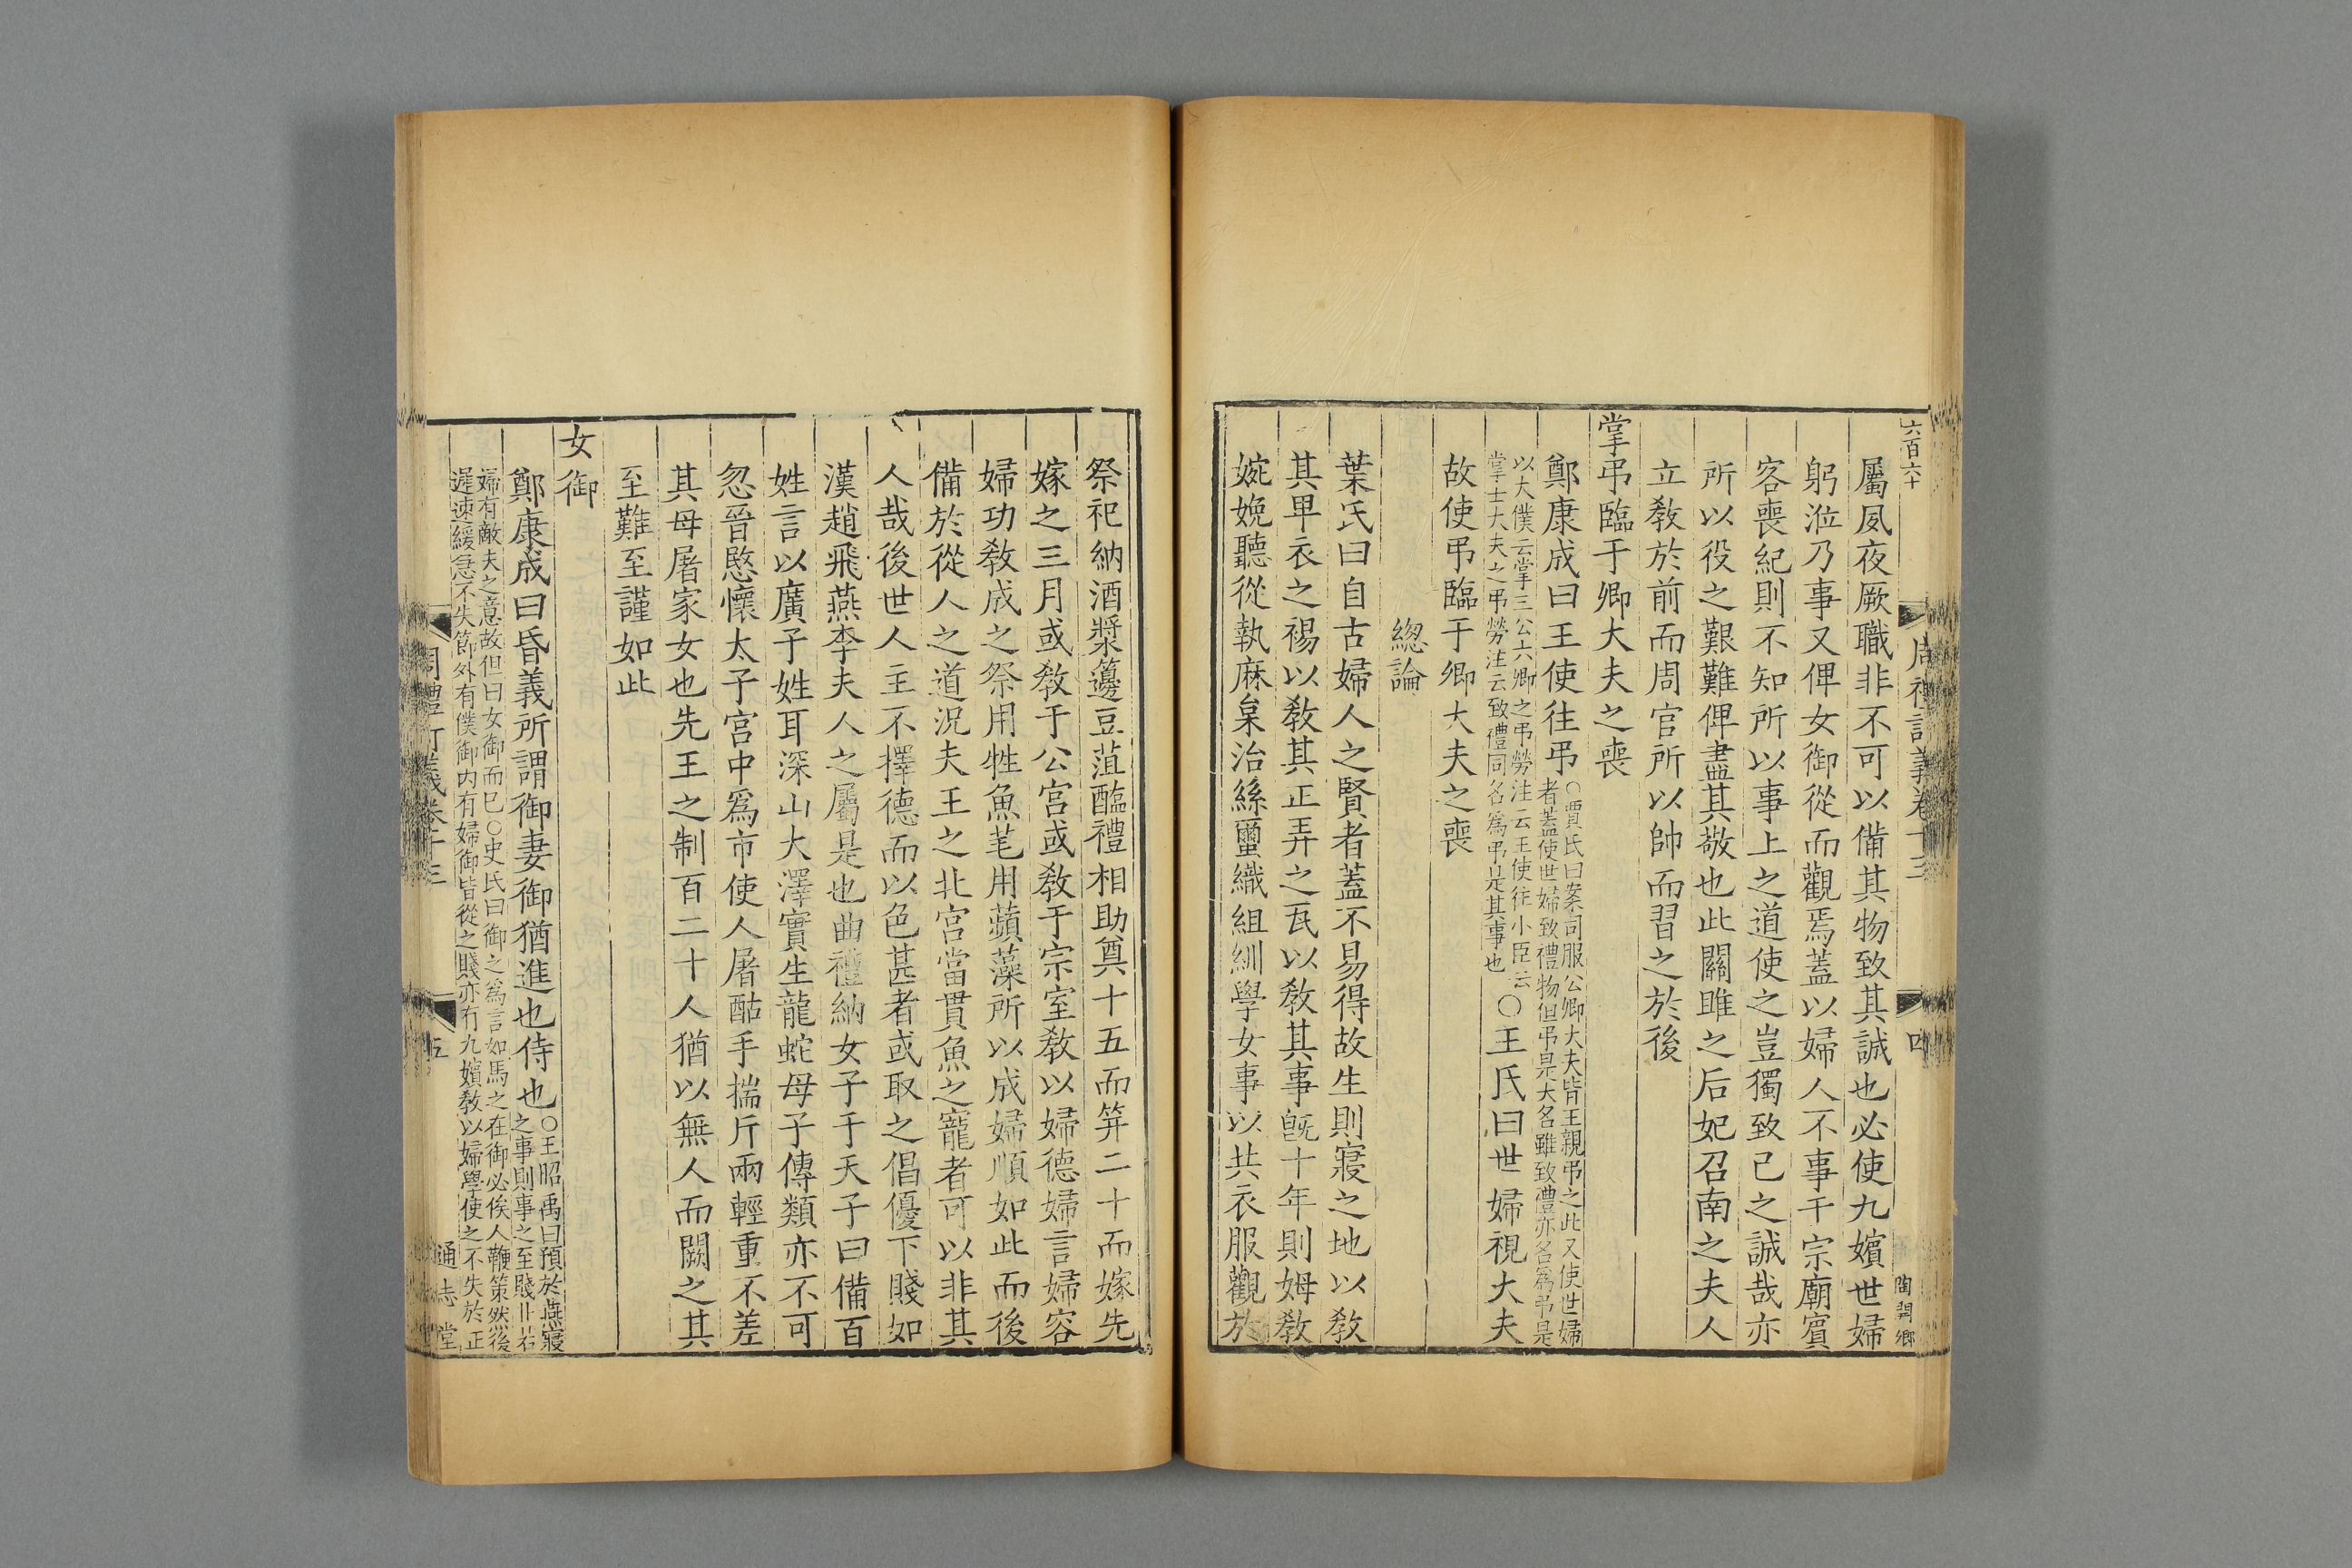 六百六十
周禮訂義卷十三
四
陶閏鄉
屬夙夜厥職非不可以備其物致其誠也必使九嬪世婦
躬涖乃事又俾女御從而觀焉蓋以婦人不事于宗廟賓
客喪紀則不知所以事上之道使之豈獨致已之誠哉亦
所以役之艱難俾盡其敬也此關雎之后妃召南之夫人
立敎於前而周官所以帥而習之於後
掌弔臨于卿大夫之喪
鄭康成曰王使往弔○賈氏曰案司服公卿大夫皆王親弔之此又使世婦
者蓋使世婦致禮物但弔是大名雖致禮亦名為弔是
以大僕云掌三公六卿之弔勞注云王使往小臣云
掌士大夫之弔勞注云致禮同名為弔是其事也○王氏曰世婦視大夫
故使弔臨于卿大夫之喪
總論
葉氏曰自古婦人之賢者蓋不易得故生則寢之地以敎
其卑衣之裼以敎其正弄之瓦以敎其事旣十年則姆敎
婉娩聽從執麻枲治絲蠒織組紃學女事以共衣服觀於
祭祀納酒漿籩豆菹醢禮相助奠十五而笄二十而嫁先
嫁之三月或敎于公宮或敎于宗室敎以婦德婦言婦容
婦功敎成之祭用牲魚芼用蘋藻所以成婦順如此而後
備於從人之道況夫王之北宮當貫魚之寵者可以非其
人哉後世人主不擇德而以色甚者或取之倡優下賤如
漢趙飛燕李夫人之屬是也曲禮納女子于天子曰備百
姓言以廣子姓耳深山大澤實生龍蛇母子傳類亦不可
忽晉愍懷太子宮中為市使人屠酤手揣斤兩輕重不差
其母屠家女也先王之制百二十人猶以無人而闕之其
至難至謹如此
女御
鄭康成曰昏義所謂御妻御猶進也侍也○王昭禹曰預於燕寢
之事則事之至賤非若
婦有敵夫之意故但曰女御而已○史氏曰御之為言如馬之在御必俟人鞭策然後
遲速緩急不失節外有僕御内有婦御皆從之賤亦有九嬪敎以婦學使之不失於正
周禮訂義卷十三
五
通志堂